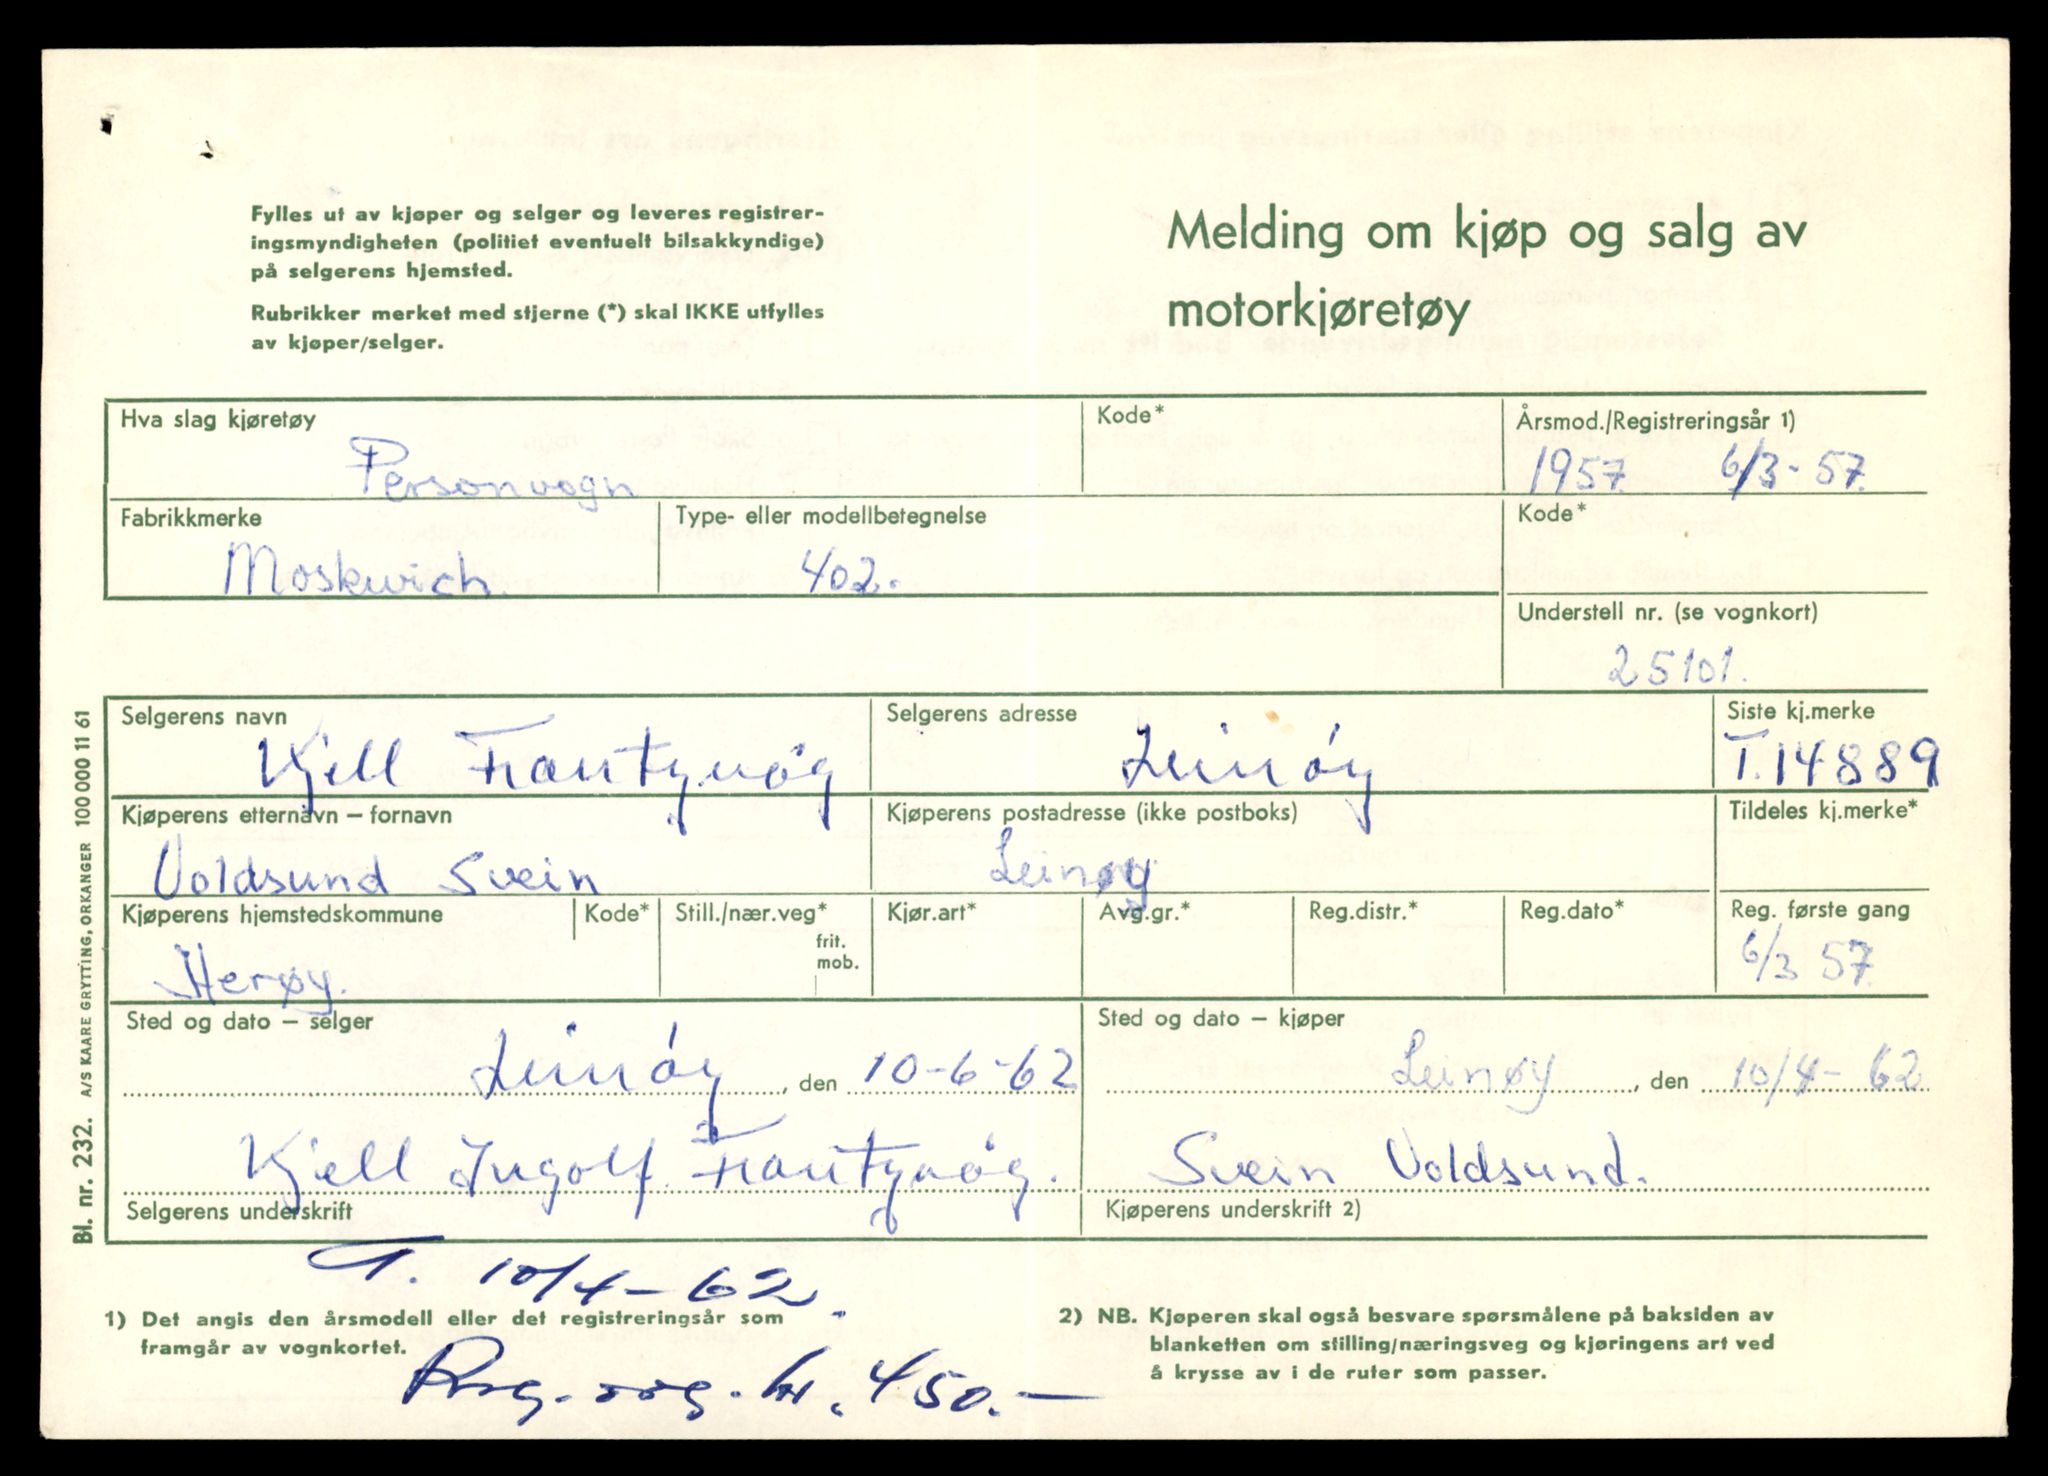 Fylles ut av kjøper og selger og leveres registrer-
ingsmyndigheten (politiet eventuelt bilsakkyndige)
på selgerens hjemsted.
Rubrikker merket med stjerne (*) skal IKKE utfylles
av kjøper/selger.
Melding om kjøp og salg av
motorkjøretøy
Hva slag kjøretøy
Personvogn
Kode*
Årsmod./Registreringsår 1)
1957. 6/3-57.
Fabrikkmerke
Moskwich.
Type- eller modellbetegnelse
402.
Kode*
Understell nr. (se vognkort)
25101.
Selgerens navn
Kjell
Selgerens adresse
Leinøy
Siste kj.merke
T.14889
Kjøperens etternavn – fornavn
Voldsund Svein
Kjøperens postadresse (ikke postboks)
Leinøy
Tildeles kj.merke*
Kjøperens hjemstedskommune
Herøy.
Kode*
Still./nær.veg*
frit.
mob.
Kjør.art*
Avg.gr.*
Reg.distr.*
Reg.dato*
Reg. første gang
6/3 57.
Sted og dato – selger
Leinøy, den 10-6-62
Sted og dato – kjøper
Leinøy, den 10/4-62
Kjell Ingolf
Selgerens underskrift
Svein Voldsund.
Kjøperens underskrift 2)
T. 10/4-62.
1) Det angis den årsmodell eller det registreringsår som
framgår av vognkortet.
2) NB. Kjøperen skal også besvare spørsmålene på baksiden av
blanketten om stilling/næringsveg og kjøringens art ved
å krysse av i de ruter som passer.
kr. 450.-
Bl. nr. 232. A/S KAARE GRYTTING, ORKANGER 100 000 11 61